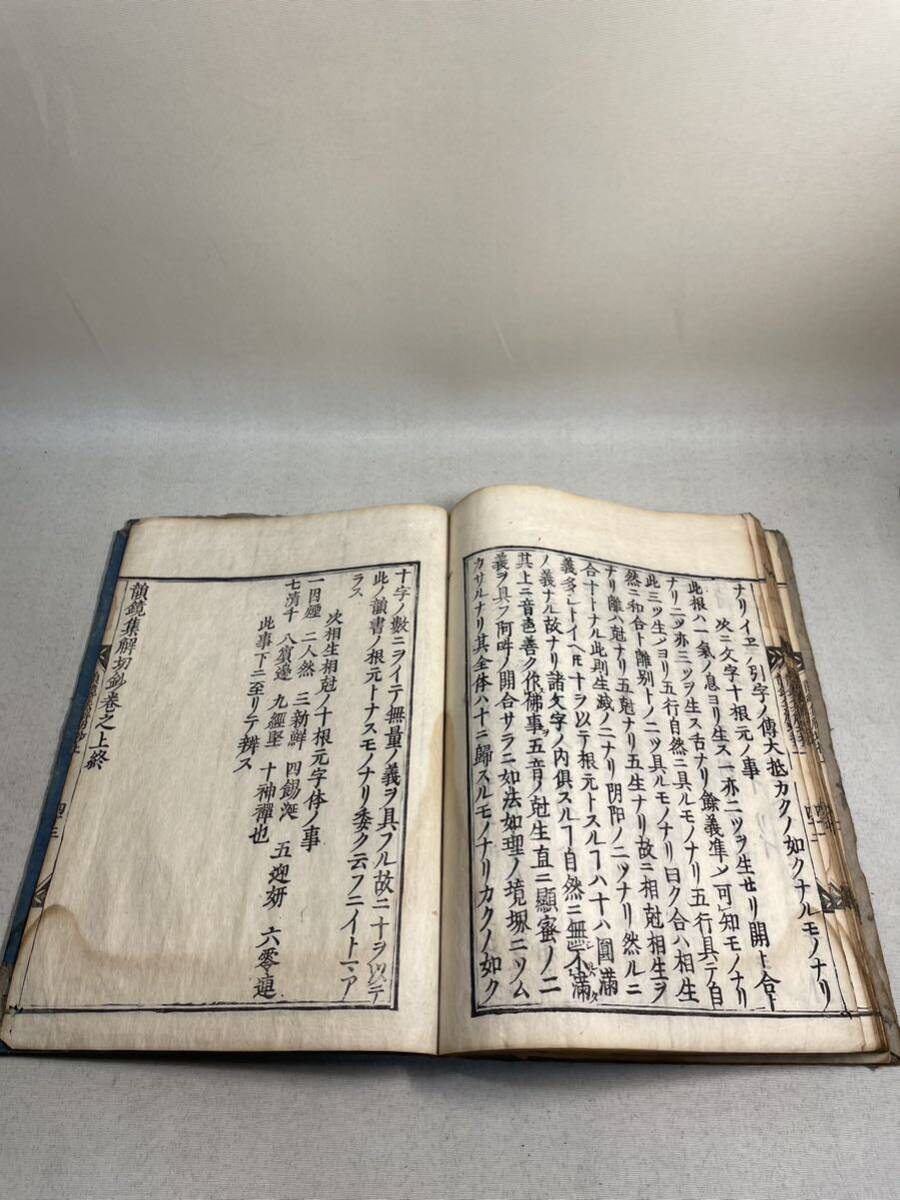 ナリイヱノ引字ノ傳大抵カクノ如クナルモノナリ
次ニ文字十根元ノ事
此根ハ一氣ノ息ヨリ生ス一亦二ツヲ生セリ開ト合ト
ナリ二ツ亦三ツヲ生ス舌ナリ餘義准メ可知モノナリ
此三ツ生メヨリ五行自然ニ具ルモノナリ五行具テ自
然ニ和合ト離別トノ二ツ具ルモノナリ曰ク合ハ相生
ナリ離ハ尅ナリ五尅ナリ五生ナリ故ニ相尅相生ヲ
合十トナル此則生滅ノ二ナリ阴阳ノ二ツナリ然ルニ
義多シトイヘ𪜈十ヲ以テ根元トスルヿハ十ハ圓滿
ノ義ナル故ナリ諸文字ノ内俱スルヿ自然ニ無不滿
其上ニ音色善ク作佛事五音ノ尅生直ニ顯蜜ノ二
義ヲ具フ阿吽ノ開合サラニ如法如理ノ境堺ニツム
カサルナリ其全体ハ十ニ歸スルモノナリカクノ如ク
十字ノ數ニヲイテ無量ノ義ヲ具フル故ニ十ヲ以テ
此ノ韻書ノ根元トナスモノナリ委ク云フニイトマア
ラス
次相生相尅ノ十根元字体ノ事
一因煙 二人然 三新鮮 四錫涎 五迎妍 六零連
七清千 八賓邊 九經堅 十神禪也
此事下ニ至リテ辨ス
韻鏡集解切鈔巻之上終
四十三